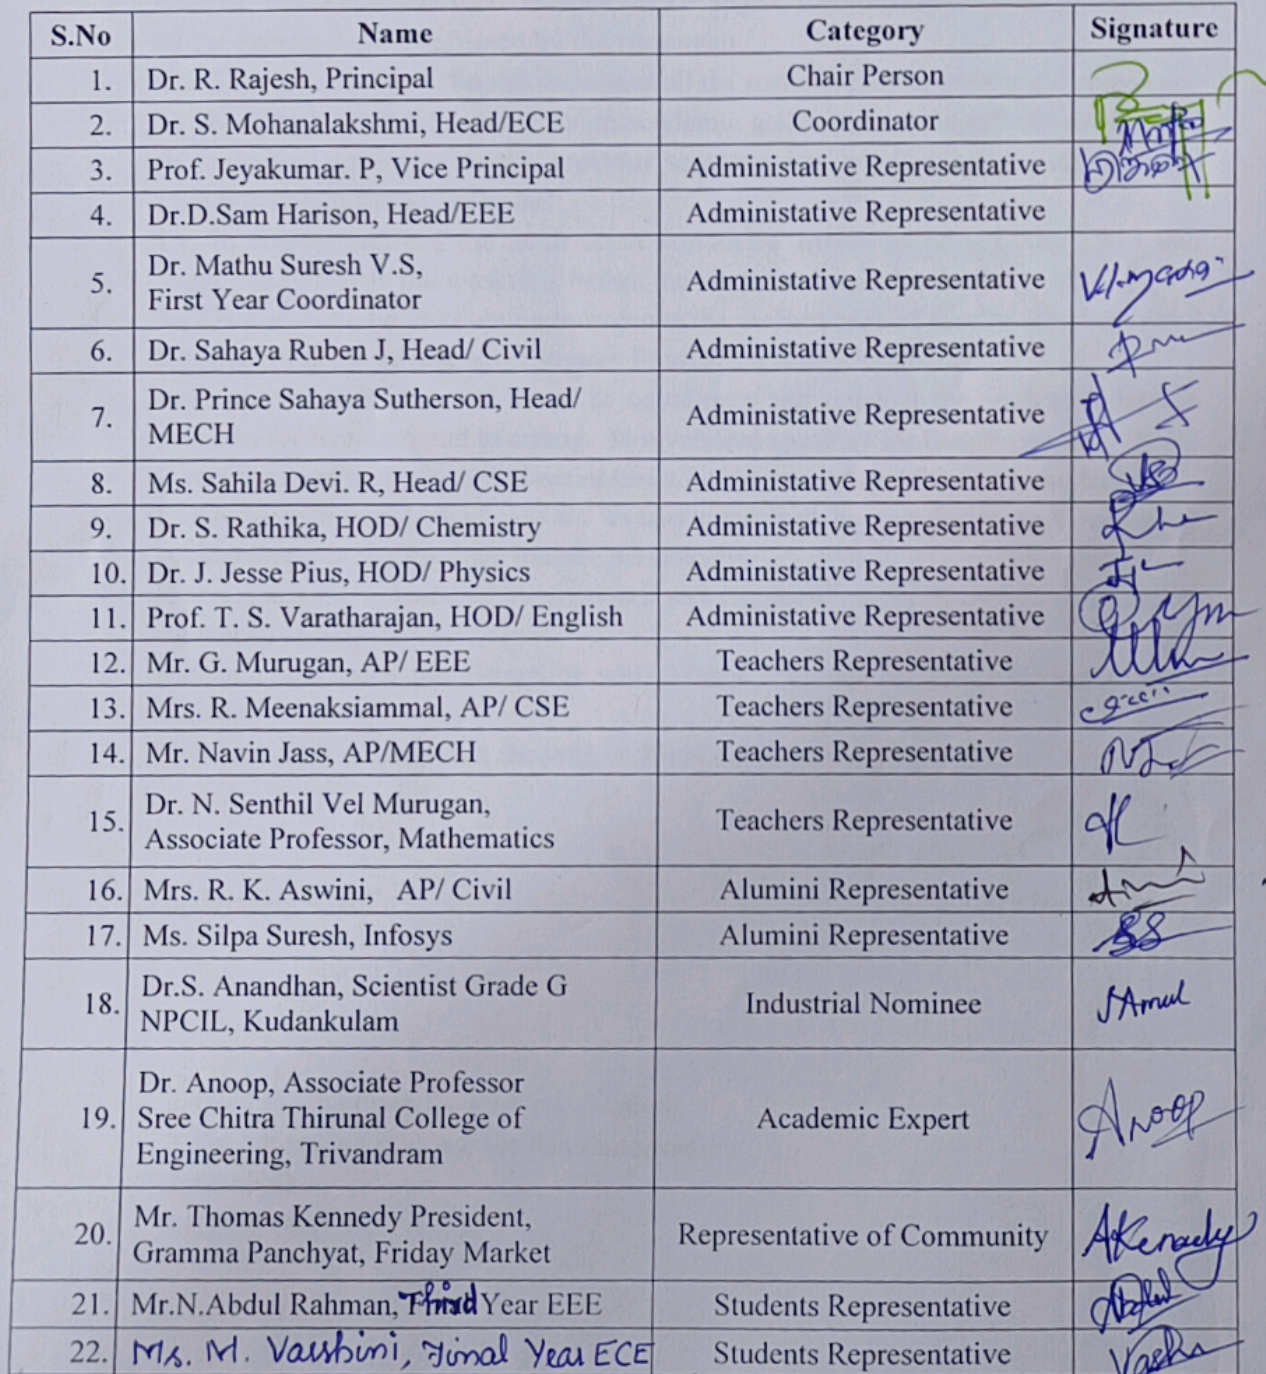 S.No Name Category Signature
1. Dr. R. Rajesh, Principal Chair Person
2. Dr. S. Mohanalakshmi, Head/ECE Coordinator
3. Prof. Jeyakumar. P, Vice Principal Administative Representative
4. Dr.D.Sam Harison, Head/EEE Administative Representative
5. Dr. Mathu Suresh V.S,
First Year Coordinator Administative Representative
6. Dr. Sahaya Ruben J, Head/ Civil Administative Representative
7. Dr. Prince Sahaya Sutherson, Head/
MECH Administative Representative
8. Ms. Sahila Devi. R, Head/ CSE Administative Representative
9. Dr. S. Rathika, HOD/ Chemistry Administative Representative
10. Dr. J. Jesse Pius, HOD/ Physics Administative Representative
11. Prof. T. S. Varatharajan, HOD/ English Administative Representative
12. Mr. G. Murugan, AP/ EEE Teachers Representative
13. Mrs. R. Meenaksiammal, AP/ CSE Teachers Representative
14. Mr. Navin Jass, AP/MECH Teachers Representative
15. Dr. N. Senthil Vel Murugan,
Associate Professor, Mathematics Teachers Representative
16. Mrs. R. K. Aswini, AP/ Civil Alumini Representative
17. Ms. Silpa Suresh, Infosys Alumini Representative
18. Dr.S. Anandhan, Scientist Grade G
NPCIL, Kudankulam Industrial Nominee
19. Dr. Anoop, Associate Professor
Sree Chitra Thirunal College of Academic Expert Anoop
Engineering, Trivandram
20. Mr. Thomas Kennedy President,
Gramma Panchyat, Friday Market Representative of Community
21. Mr.N.Abdul Rahman, Third Year EEE Students Representative
22. Ms. M. Varshini, Final Year ECE Students Representative